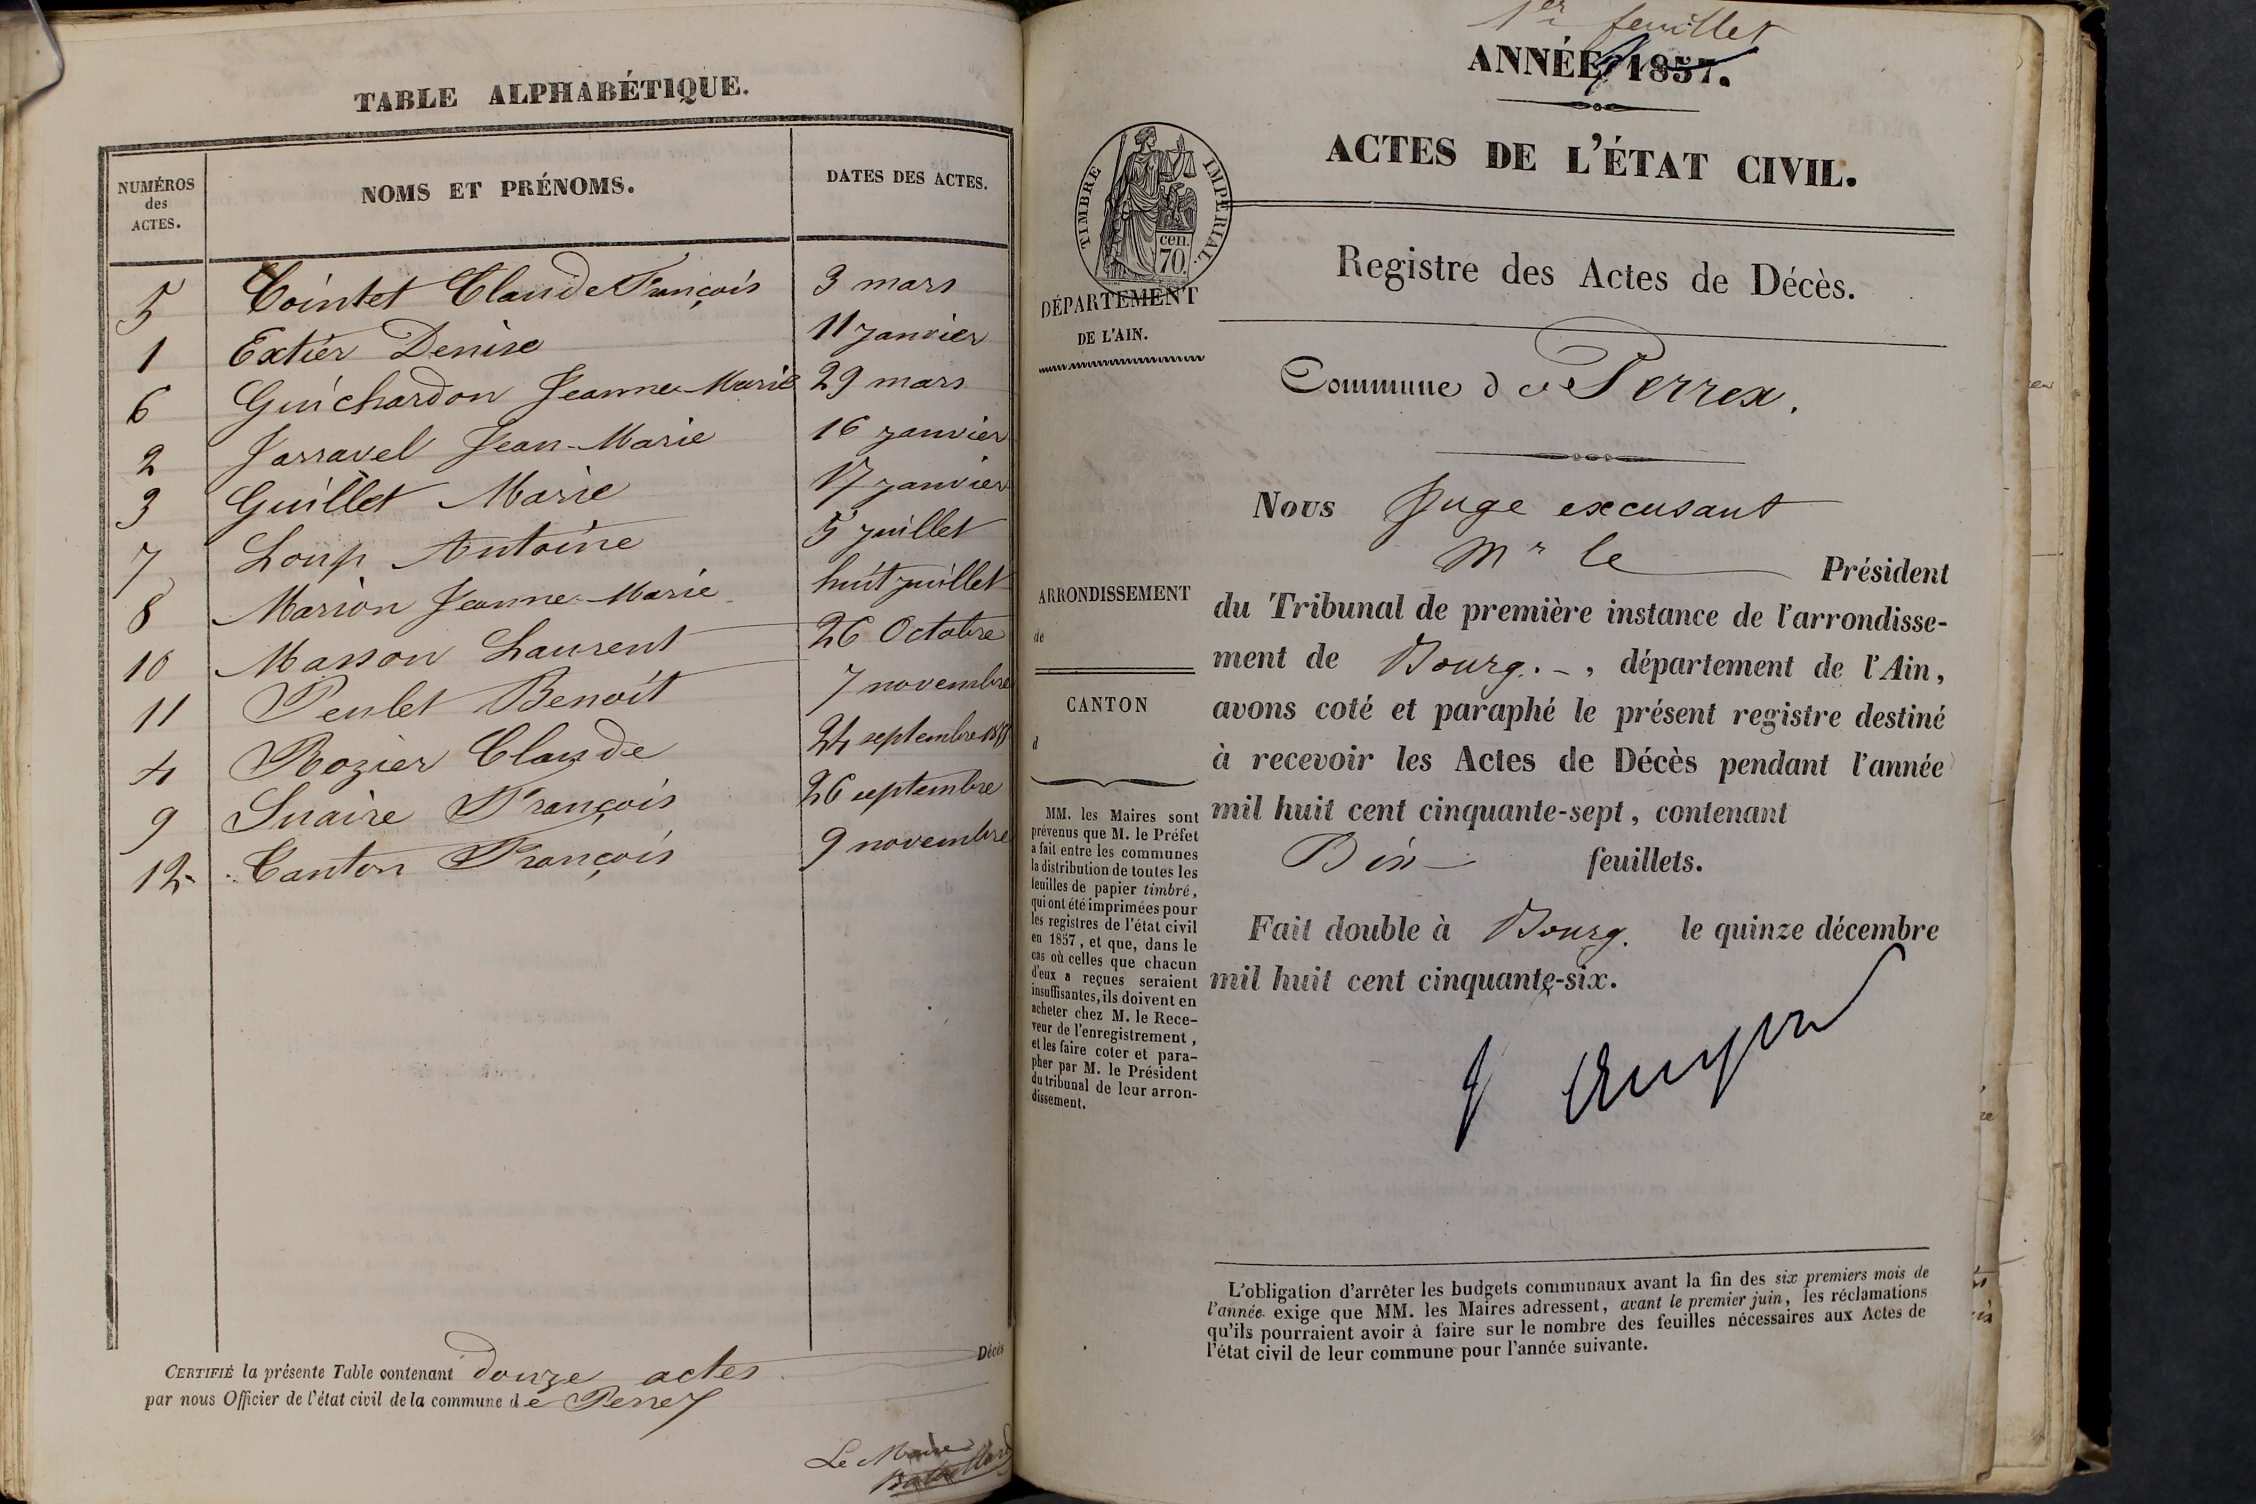 TABLE ALPHABÉTIQUE.
NUMÉROS des ACTES.
NOMS ET PRÉNOMS.
DATES DES ACTES.
5 Cointet Claude François 3 mars
1 Extier Denise 11 janvier
6 Guichardon Jeanne-Marie 29 mars
2 Jarravel Jean-Marie 16 janvier
3 Guillet Marie 17 janvier
7 Loup Antoine 5 juillet
8 Marion Jeanne-Marie huit juillet
10 Masson Laurent 26 Octobre
11 Peulet Benoit 7 novembre
4 Rozier Claude 24 septembre
9 Suaire François 26 septembre
12 Canton François 9 novembre
CERTIFIÉ la présente Table contenant douze actes Décès
par nous Officier de l'état civil de la commune de Perrex
Le Maire
1er feuillet
ANNÉE 1857.
ACTES DE L'ÉTAT CIVIL.
TIMBRE IMPÉRIAL.
cen.
70.
DÉPARTEMENT
DE L'AIN.
Registre des Actes de Décès.
Commune de Perrex.
Nous Juge excusant
Mr le Président
du Tribunal de première instance de l'arrondisse-
ment de Bourg.-, département de l'Ain,
avons coté et paraphé le présent registre destiné
à recevoir les Actes de Décès pendant l'année
mil huit cent cinquante-sept, contenant
Dix feuillets.
Fait double à Bourg. le quinze décembre
mil huit cent cinquante-six.
ARRONDISSEMENT
de
CANTON
d
MM. les Maires sont
prévenus que M. le Préfet
a fait entre les communes
la distribution de toutes les
feuilles de papier timbré,
qui ont été imprimées pour
les registres de l'état civil
en 1857, et que, dans le
cas où celles que chacun
d'eux a reçues seraient
insuffisantes, ils doivent en
acheter chez M. le Rece-
veur de l'enregistrement,
et les faire coter et para-
pher par M. le Président
du tribunal de leur arron-
dissement.
L'obligation d'arrêter les budgets communaux avant la fin des six premiers mois de
l'année exige que MM. les Maires adressent, avant le premier juin, les réclamations
qu'ils pourraient avoir à faire sur le nombre des feuilles nécessaires aux Actes de
l'état civil de leur commune pour l'année suivante.